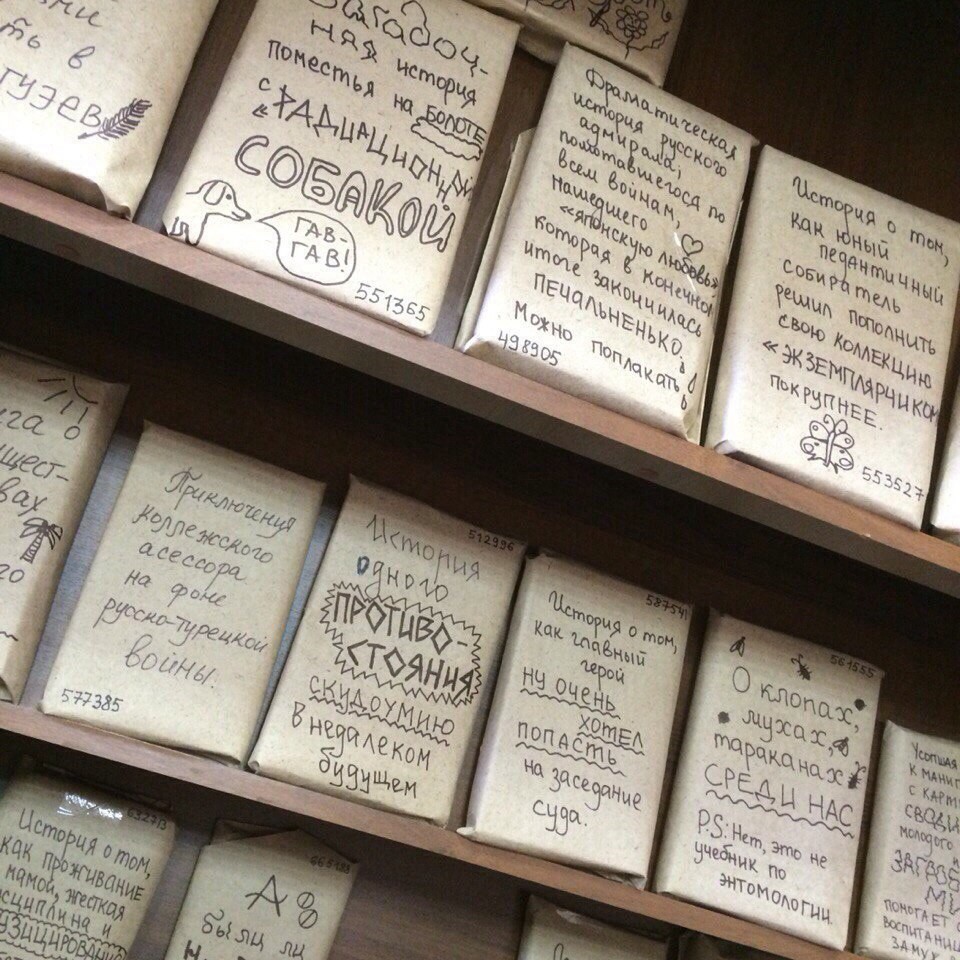 ть в
Загадоч-
ная история
поместья на болоте
с «РАДИАЦИОННОЙ
СОБАКОЙ
ГАВ-
ГАВ!
551365
Драматическая
история русского
адмирала,
помотавшегося по
всем войнам,
нашедшего
«японскую любовь»
которая в конечном
итоге закончилась
ПЕЧАЛЬНЕНЬКО.
Можно поплакать
498905
История о том,
как юный
педантичный
собиратель
решил пополнить
свою коллекцию
«ЭКЗЕМПЛЯРЧИКОМ
покрупнее.
553527
Приключения
коллежского
асессора
на фоне
русско-турецкой
войны.
577385
512996
История
одного
ПРОТИВО-
СТОЯНИЯ
СКУДОУМИЮ
в недалеком
будущем
587541
История о том,
как главный
герой
ну очень
хотел
попасть
на заседание
суда.
561555
О клопах,
мухах,
тараканах
СРЕДИ НАС
P.S: Нет, это не
учебник по
энтомологии.
Усопшая
к
с
молодого
помогает
замуж
632713
История о том,
как проживание
с мамой, жесткая
и
А
были ли